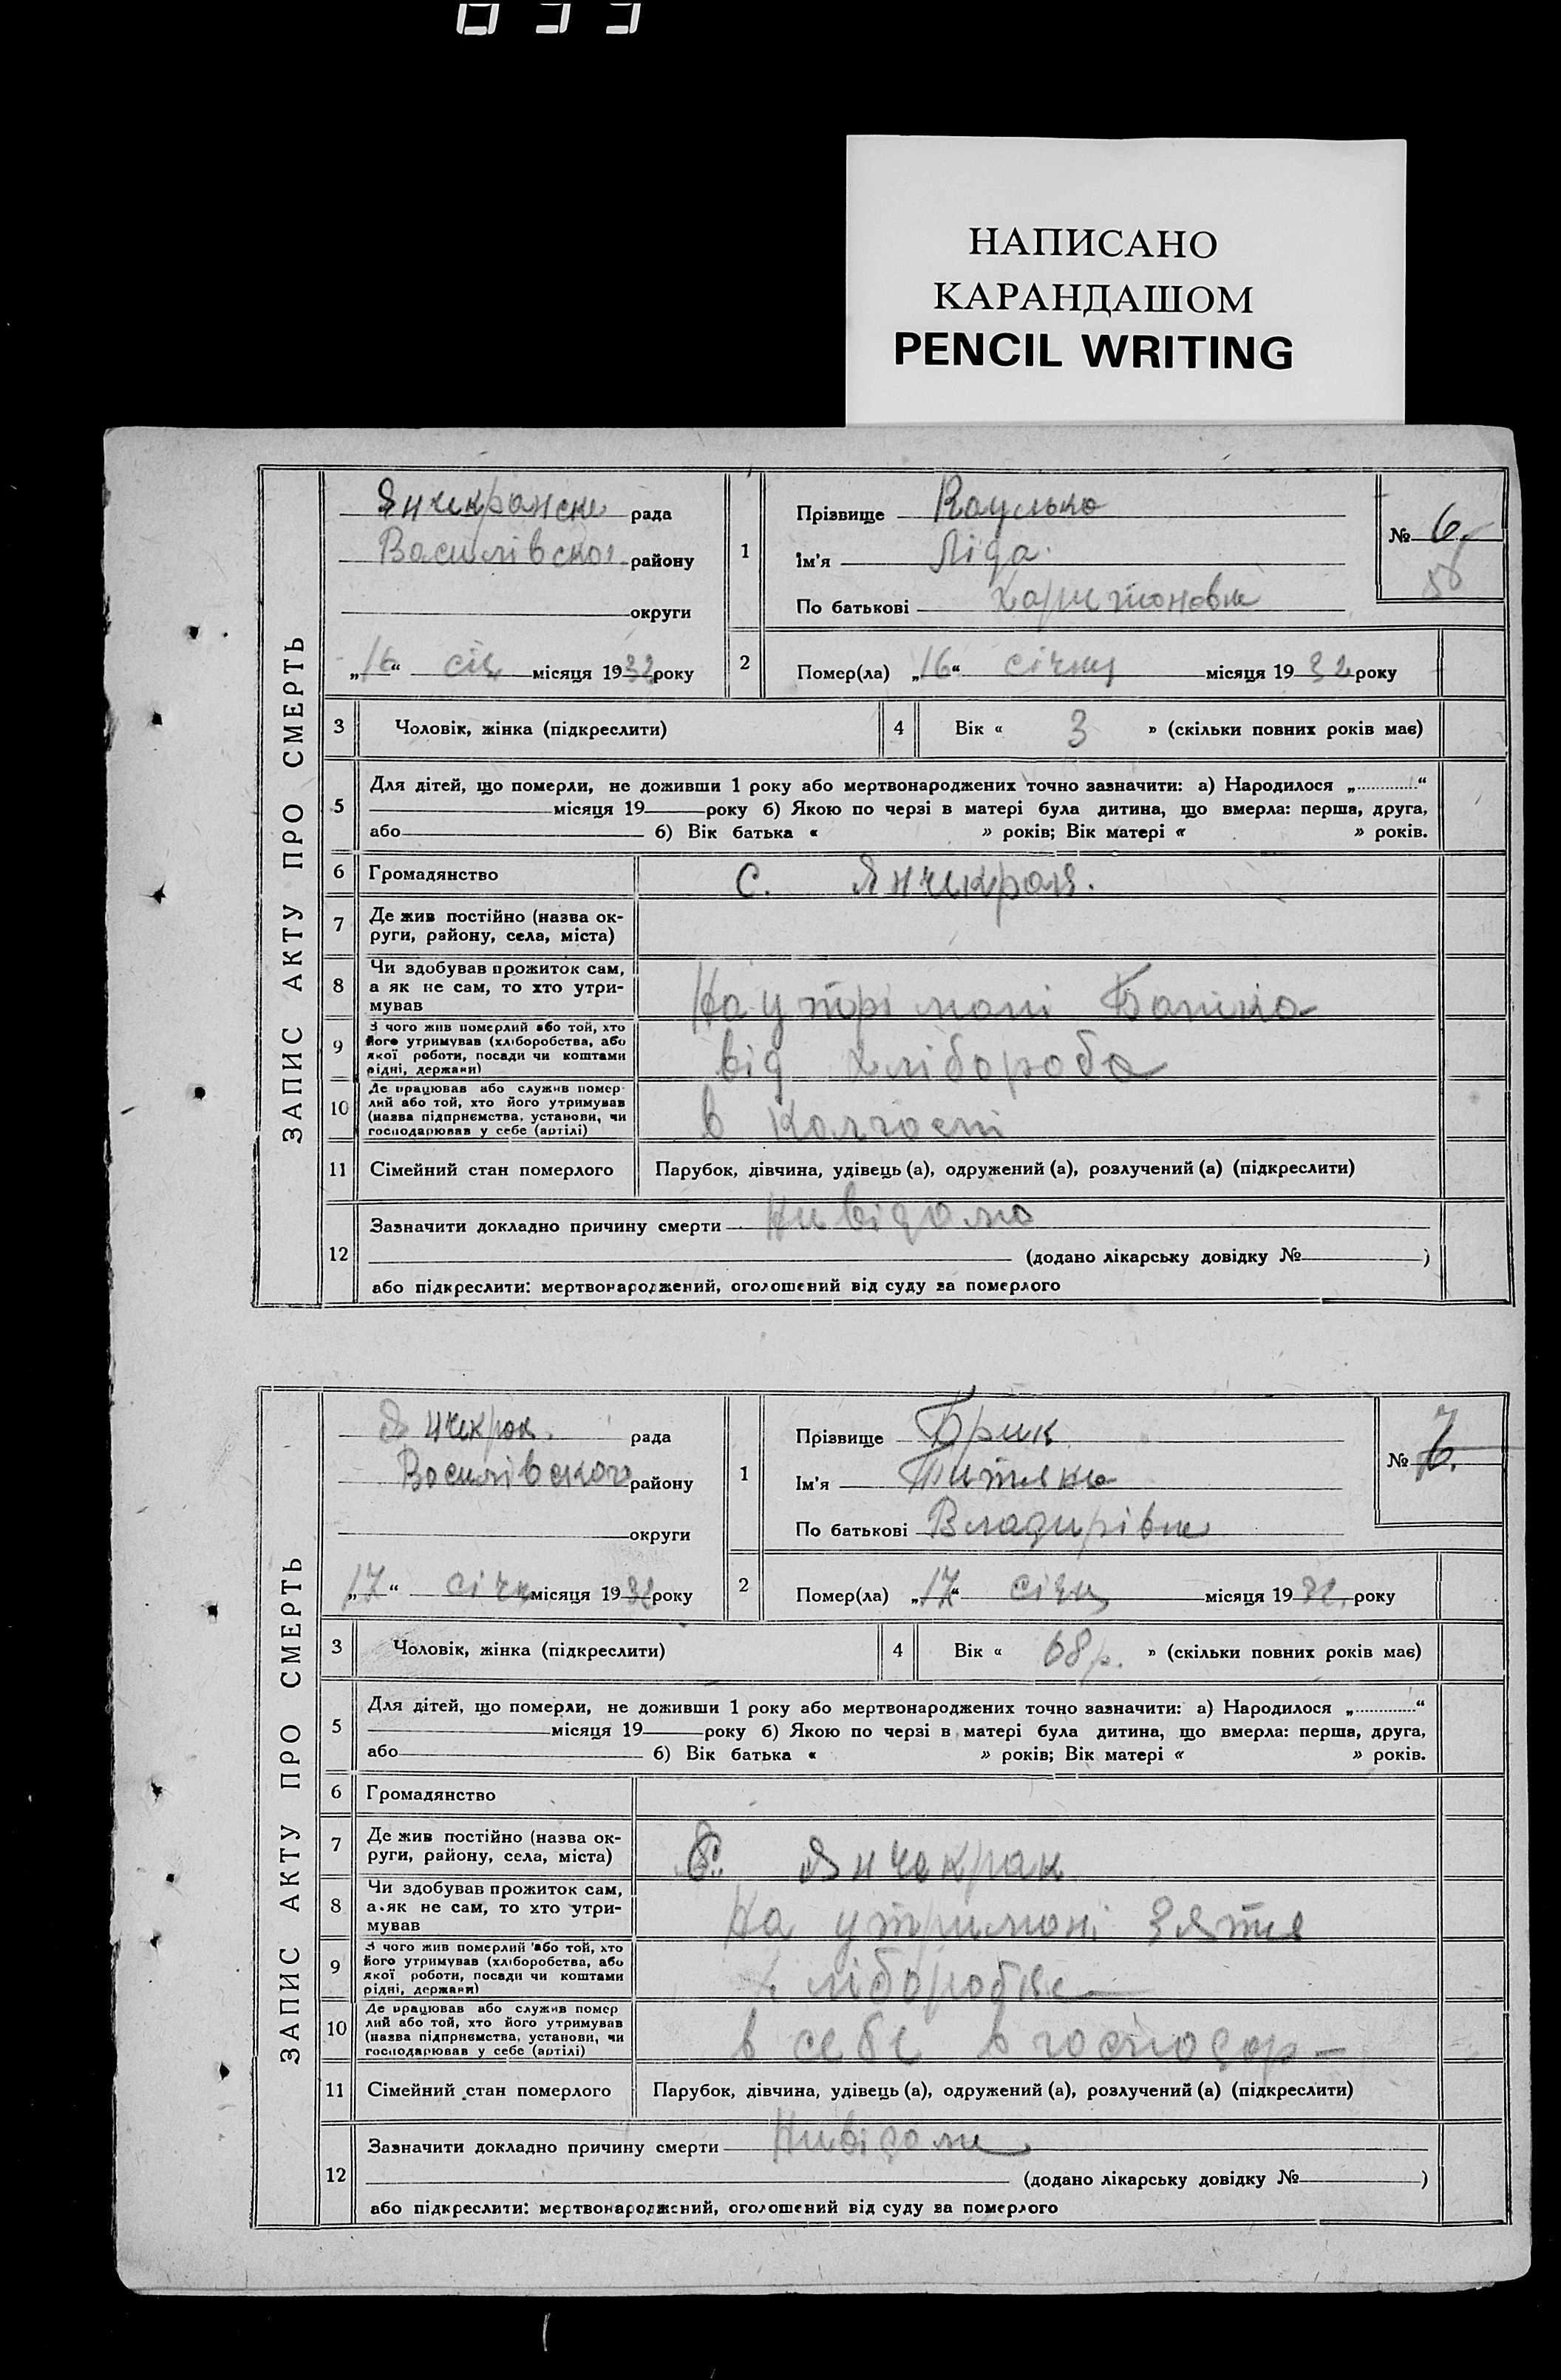 НАПИСАНО
КАРАНДАШОМ
PENCIL WRITING
ЗАПИС АКТУ ПРО СМЕРТЬ
Янчекранске рада
Василівског району
округи
„16“ січ місяця 1932 року
1
Прізвище
Ім'я Ліда
По батькові Харитоновна
№ 6.
2
Помер(ла) „16“ січня місяця 1932 року
3 Чоловік, жінка (підкреслити)
4 Вік « 3 » (скільки повних років має)
5 Для дітей, що померли, не доживши 1 року або мертвонароджених точно зазначити: а) Народилося „ “
місяця 19 року б) Якою по черзі в матері була дитина, що вмерла: перша, друга,
або б) Вік батька « » років; Вік матері « » років.
6 Громадянство с. Янчекрак.
7 Де жив постійно (назва ок-
руги, району, села, міста)
8 Чи здобував прожиток сам,
а як не сам, то хто утри-
мував
На утрімані Батька
9 З чого жив померлий або той, хто
його утримував (хліборобства, або
якої роботи, посади чи коштами
рідні, держави)
від хлібороба
10 Де працював або служив помер-
лий або той, хто його утримував
(назва підприємства, установи, чи
господарював у себе (артілі)
в колгоспі
11 Сімейний стан померлого Парубок, дівчина, удівець (а), одружений (а), розлучений (а) (підкреслити)
12 Зазначити докладно причину смерти Нивідомо
(додано лікарську довідку № )
або підкреслити: мертвонароджений, оголошений від суду за померлого
ЗАПИС АКТУ ПРО СМЕРТЬ
Янчекрак. рада
Василівского району
округи
„17“ січн місяця 1932 року
1
Прізвище Брик
Ім'я
По батькові Владирівна
№ 7
2
Помер(ла) „17“ січн місяця 1932. року
3 Чоловік, жінка (підкреслити)
4 Вік « 68 р. » (скільки повних років має)
5 Для дітей, що померли, не доживши 1 року або мертвонароджених точно зазначити: а) Народилося „ “
місяця 19 року б) Якою по черзі в матері була дитина, що вмерла: перша, друга,
або б) Вік батька « » років; Вік матері « » років.
6 Громадянство
7 Де жив постійно (назва ок-
руги, району, села, міста)
С. Янчекрак
8 Чи здобував прожиток сам,
а як не сам, то хто утри-
мував
На утримані Зятя
9 З чого жив померлий або той, хто
його утримував (хліборобства, або
якої роботи, посади чи коштами
рідні, держави)
10 Де працював або служив помер
лий або той, хто його утримував
(назва підприємства, установи, чи
господарював у себе (артілі)
в себе в господар-
11 Сімейний стан померлого Парубок, дівчина, удівець (а), одружений (а), розлучений (а) (підкреслити)
12 Зазначити докладно причину смерти Нивідоми
(додано лікарську довідку № )
або підкреслити: мертвонароджений, оголошений від суду за померлого